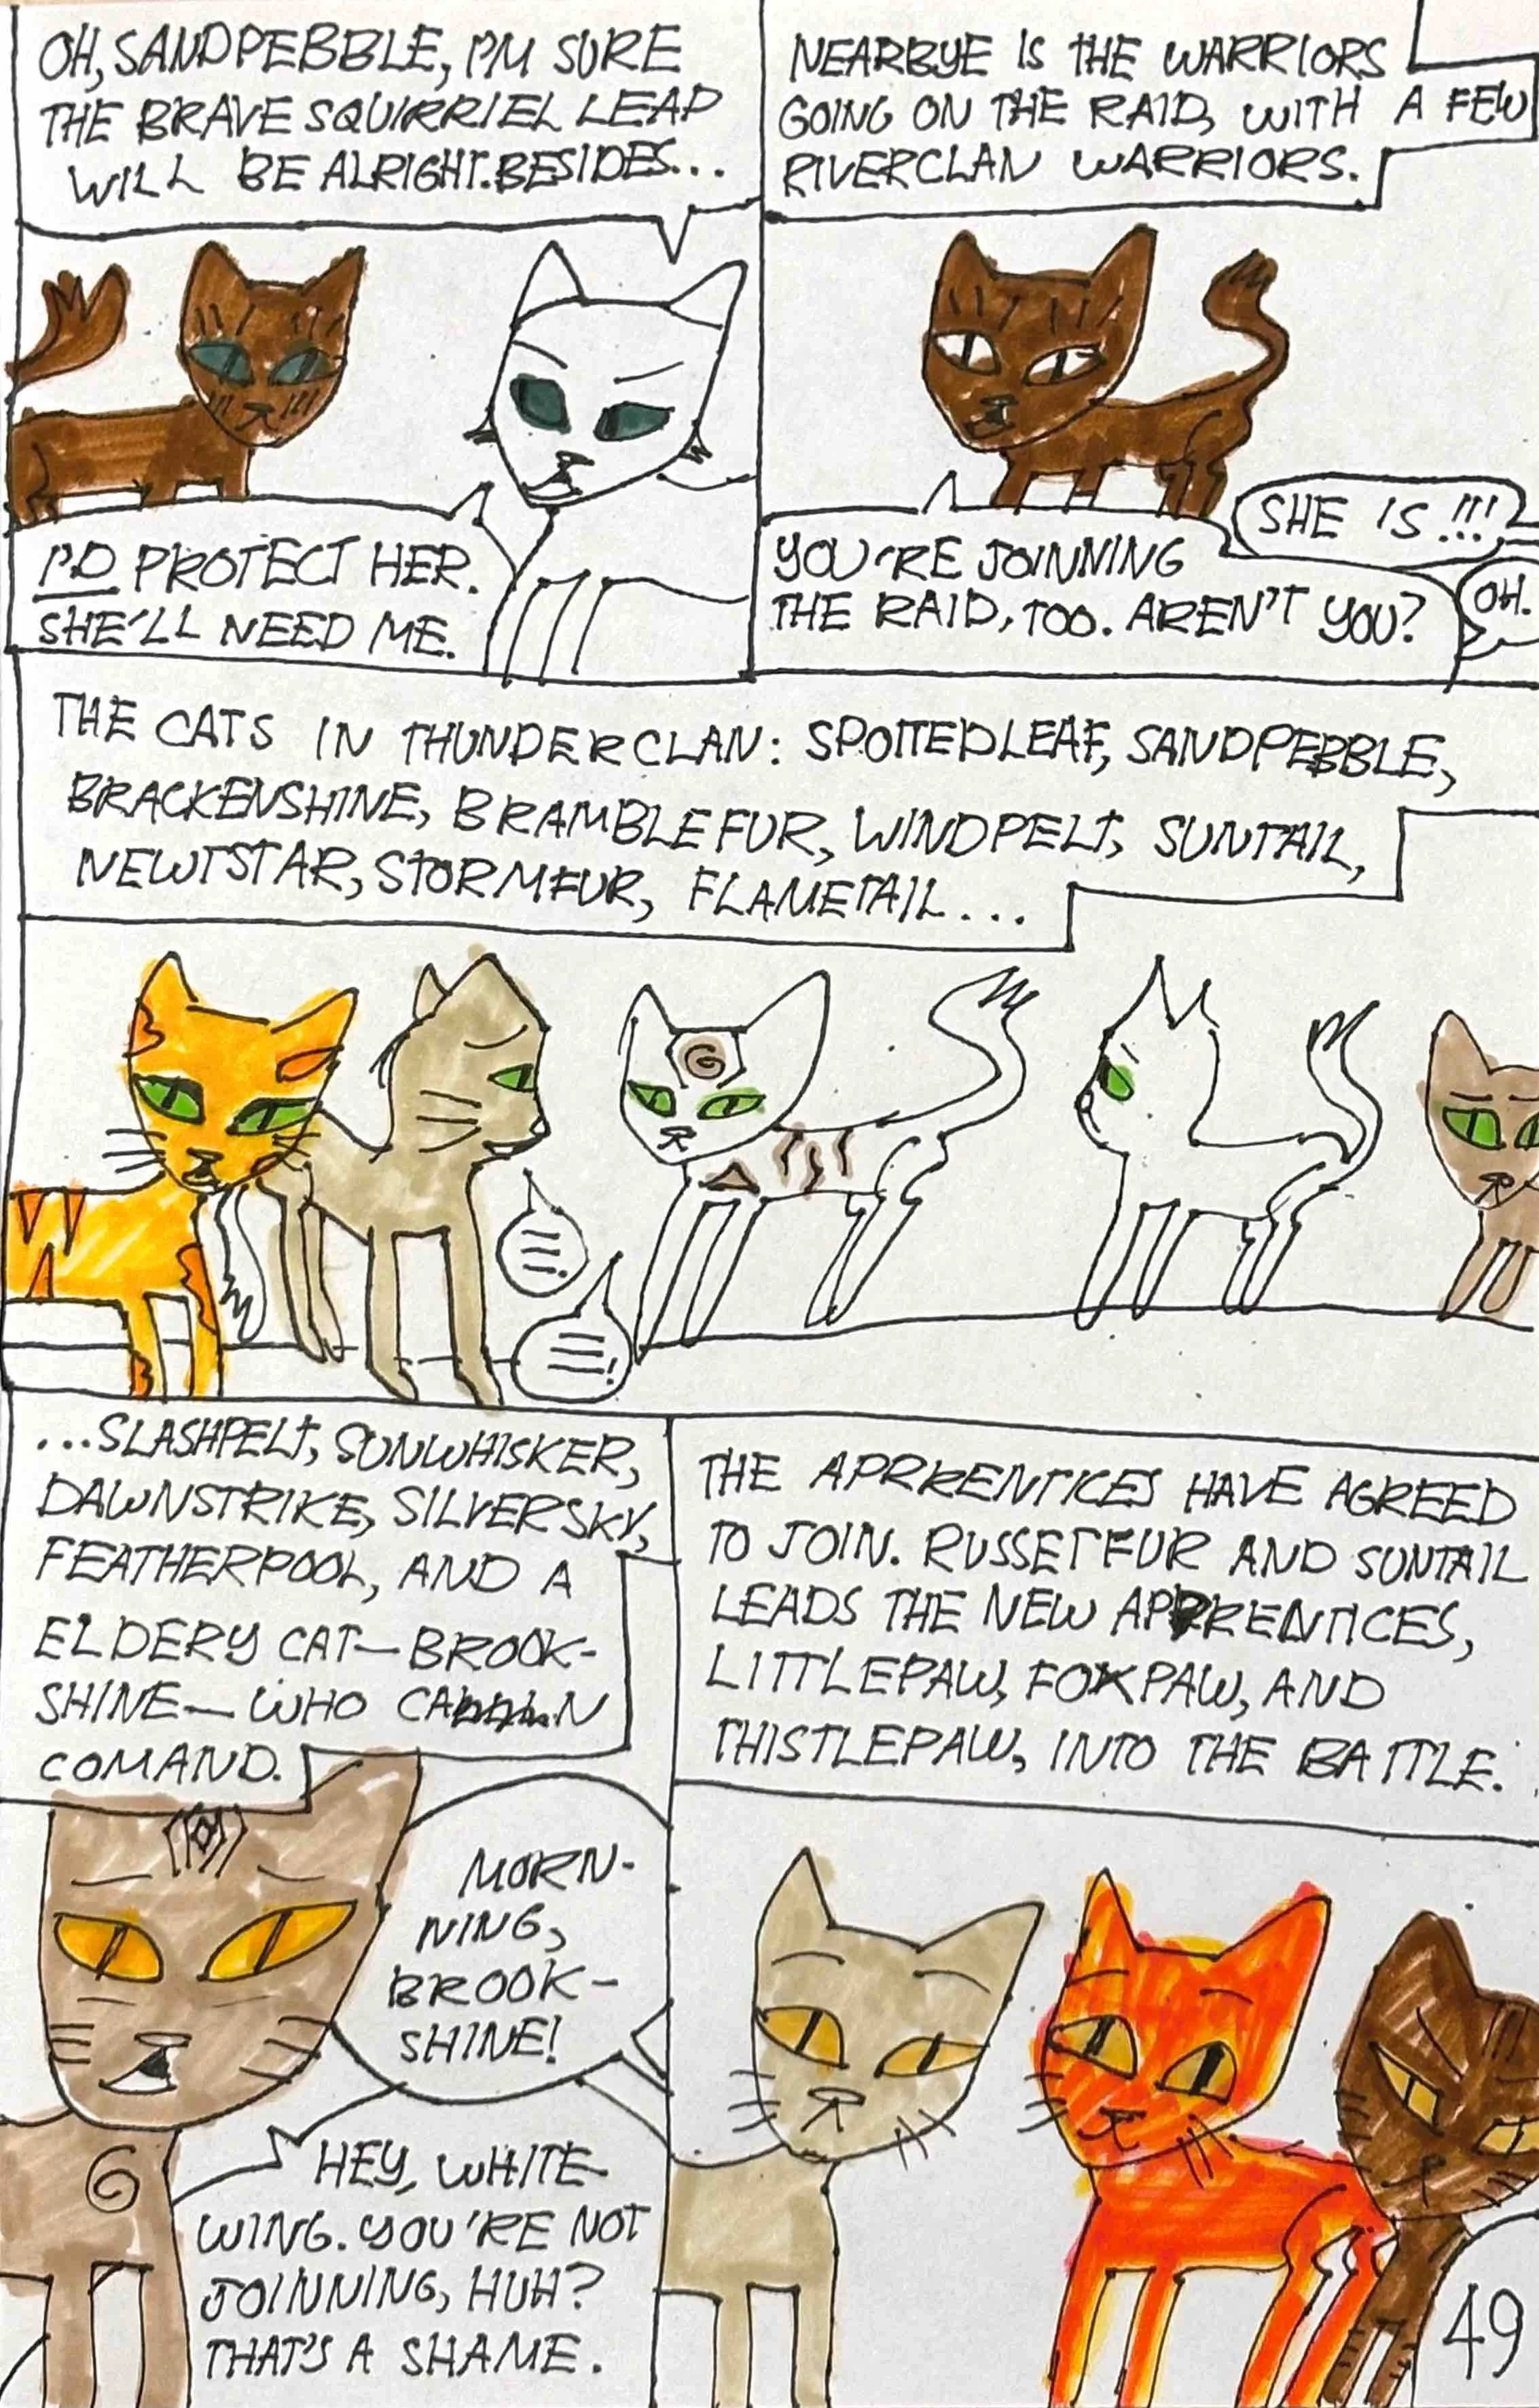 OH, SANDPEBBLE, I'M SURE
THE BRAVE SQUIRRIEL LEAP
WILL BE ALRIGHT. BESIDES...
I'D PROTECT HER.
SHE'LL NEED ME.
NEARBYE IS THE WARRIORS
GOING ON THE RAID, WITH A FEW
RIVERCLAN WARRIORS.
YOU'RE JOINNING
THE RAID, TOO. AREN'T YOU?
SHE IS!!!
OH.
THE CATS IN THUNDERCLAN: SPOTTEDLEAF, SANDPEBBLE,
BRACKENSHINE, BRAMBLEFUR, WINDPELT, SUNTAIL,
NEWTSTAR, STORMFUR, FLAMETAIL...
...SLASHPELT, SUNWHISKER,
DAWNSTRIKE, SILVERSKY,
FEATHERPOOL, AND A
ELDERY CAT—BROOK-
SHINE—WHO CAN
COMAND.
MORN-
NING,
BROOK-
SHINE!
HEY, WHITE-
WING. YOU'RE NOT
JOINNING, HUH?
THAT'S A SHAME.
THE APRRENTICES HAVE AGREED
TO JOIN. RUSSETFUR AND SUNTAIL
LEADS THE NEW APRRENTICES,
LITTLEPAW, FOXPAW, AND
THISTLEPAW, INTO THE BATTLE.
49